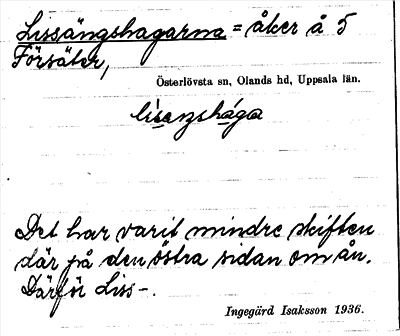 Lissängshagarna = åker å 5
Försäter,
Österlövsta sn, Olands hd, Uppsala län.
lisaŋshága
Det har varit mindre skiften
där på den östra sidan om ån.
Därför Liss-.
Ingegärd Isaksson 1936.